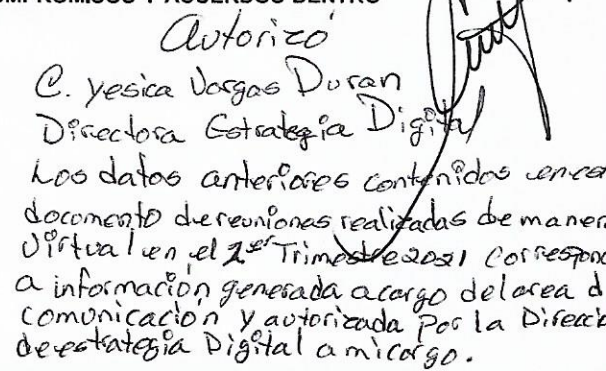 OMPROMISOS Y ACUERDOS DENTRO
Autorizó
C. Yesica Vargas Duran
Directora Estrategia Digital
Los datos anteriores contenidos en es
documento de reuniones realizadas de maner
virtual en el 2er Trimestre 2021 correspond
a información generada acargo del area d
comunicación y autorizada por la Direcci
de estrategia Digital a mi cargo.